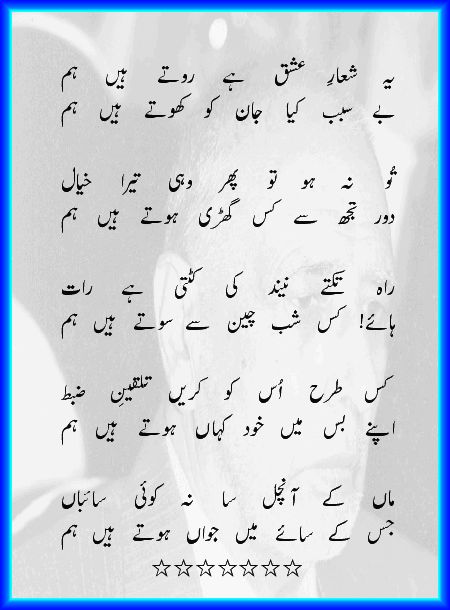 یہ شعارِ عشق ہے روتے ہیں ہم
بے سبب کیا جان کو کھوتے ہیں ہم
تُو نہ ہو تو پھر وہی تیرا خیال
دور تجھ سے کس گھڑی ہوتے ہیں ہم
راہ تکتے نیند کی کٹتی ہے رات
ہائے! کس شب چین سے سوتے ہیں ہم
کس طرح اُس کو کریں تلقینِ ضبط
اپنے بس میں خود کہاں ہوتے ہیں ہم
ماں کے آنچل سا نہ کوئی سائباں
جس کے سائے میں جواں ہوتے ہیں ہم
☆☆☆☆☆☆☆